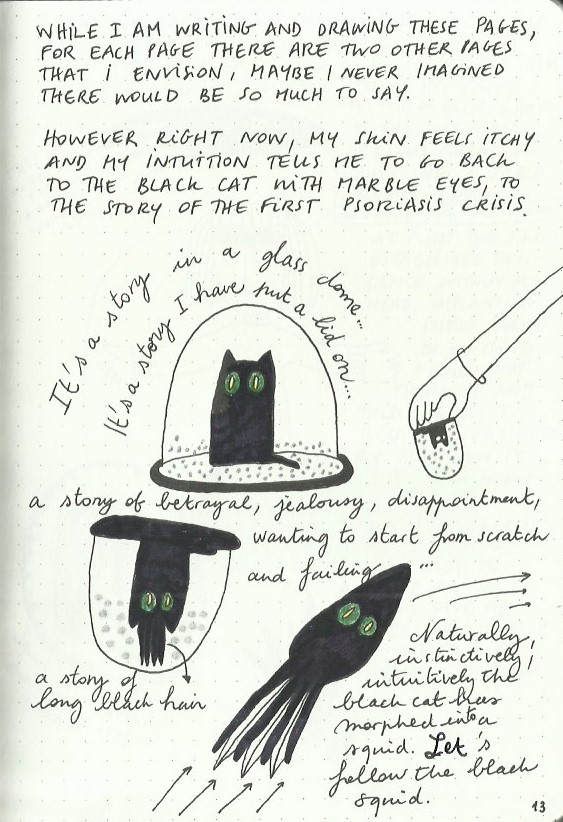 WHILE I AM WRITING AND DRAWING THESE PAGES,
FOR EACH PAGE THERE ARE TWO OTHER PAGES
THAT I ENVISION, MAYBE I NEVER IMAGINED
THERE WOULD BE SO MUCH TO SAY.
HOWEVER RIGHT NOW, MY SKIN FEELS ITCHY
AND MY INTUITION TELLS ME TO GO BACK
TO THE BLACK CAT WITH MARBLE EYES, TO
THE STORY OF THE FIRST PSORIASIS CRISIS.
It's a story in a glass dome...
It's a story I have put a lid on...
a story of betrayal, jealousy, disappointment,
wanting to start from scratch
and failing ...
a story of
long black hair
Naturally,
instinctively,
intuitively the
black cat has
morphed into a
squid. Let's
follow the black
squid.
13